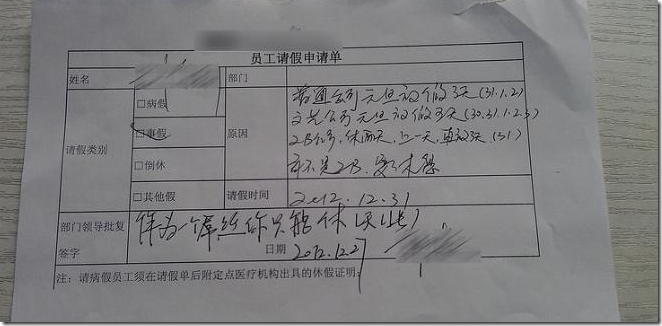 员工请假申请单
姓名
部门
请假类别
□病假
□事假
□倒休
□其他假
原因
普通公司元旦放假3天(31.1.2)
文艺公司元旦放假5天(30.31.1.2.3)
2B公司,休两天,上一天,再放3天
不是2B,
请假时间
2012.12.31
部门领导批复
作为一个屌丝你只能休
签字
日期
2012.12.27
注:请病假员工须在请假单后附定点医疗机构出具的休假证明;